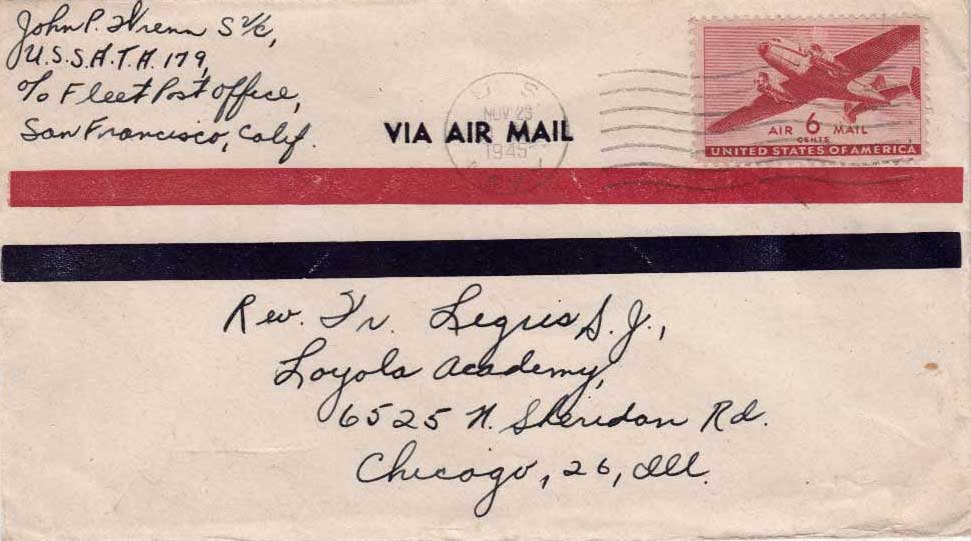 John P. Wrenn S 2/c,
U.S.S. A.T.A. 179,
c/o Fleet Post Office,
San Francisco, Calif.
VIA AIR MAIL
U.S.
NOV 23
1945
AIR 6 MAIL
CENTS
UNITED STATES OF AMERICA
Rev. Fr. Legris S.J.,
Loyola Academy,
6525 N. Sheridan Rd.
Chicago, 26, Ill.